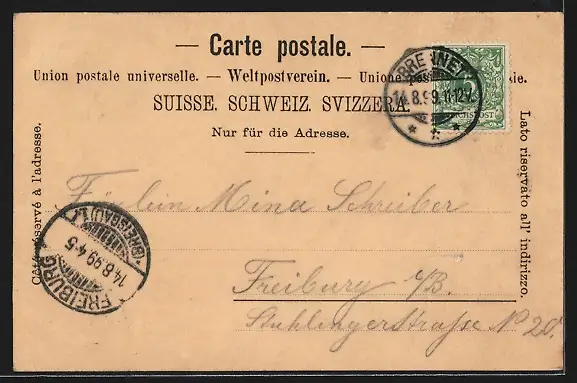 — Carte postale. —
Union postale universelle. — Weltpostverein. — Unione
SUISSE. SCHWEIZ. SVIZZERA.
Nur für die Adresse.
BRENNET
14.8.99. 11-12V.
REICHSPOST
Côté réservé à l'adresse.
Lato riservato all' indirizzo.
Fräulein Mina Schreiber
FREIBURG
14.8.99 4-5
(BREISGAU)
Freiburg i/B.
Stuhlingerstraße No 20.